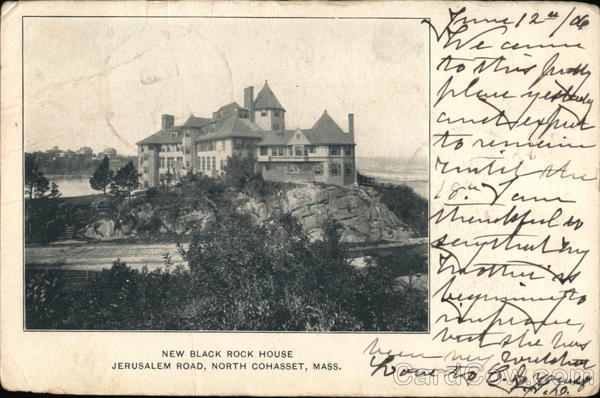 June 12th/06
We came
to this pretty
place yesterday
and expect
to remain
until the
18th. I am
thankful to
say that my
Mother is
beginning to
improve,
but she has
been very
Love to C. G. Young
NEW BLACK ROCK HOUSE
JERUSALEM ROAD, NORTH COHASSET, MASS.
CardCow.com